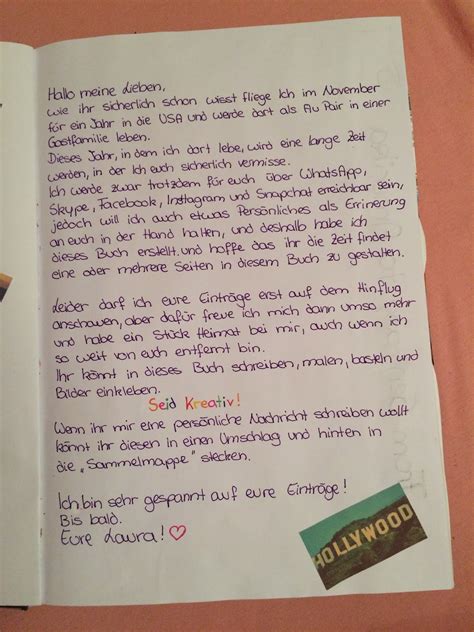 Hallo meine Lieben,
wie ihr sicherlich schon wisst fliege Ich im November
für ein Jahr in die USA und werde dort als Au Pair in einer
Gastfamilie leben.
Dieses Jahr, in dem ich dort lebe, wird eine lange Zeit
werden, in der Ich euch sicherlich vermisse.
Ich werde zwar trotzdem für euch über WhatsApp,
Skype, Facebook, Instagram und Snapchat erreichbar sein,
jedoch will ich auch etwas Persönliches als Erinnerung
an euch in der Hand halten, und deshalb habe ich
dieses Buch erstellt und hoffe das ihr die Zeit findet
eine oder mehrere Seiten in diesem Buch zu gestalten.
Leider darf ich eure Einträge erst auf dem Hinflug
anschauen, aber dafür freue ich mich dann umso mehr
und habe ein Stück Heimat bei mir, auch wenn ich
so weit von euch entfernt bin.
Ihr könnt in dieses Buch schreiben, malen, basteln und
Bilder einkleben.
Seid Kreativ!
Wenn ihr mir eine persönliche Nachricht schreiben wollt
könnt ihr diesen in einen Umschlag und hinten in
die „Sammelmappe" stecken.
Ich bin sehr gespannt auf eure Einträge!
Bis bald.
Eure Laura! ♡
HOLLYWOOD